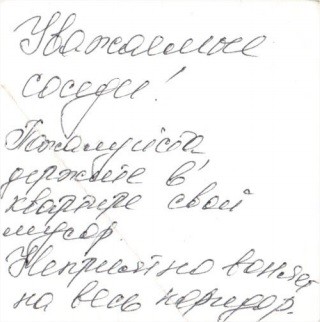 Уважаемые
соседи!
Пожалуйста
держите в
квартире свой
мусор.
Неприятно воняет
на весь коридор.